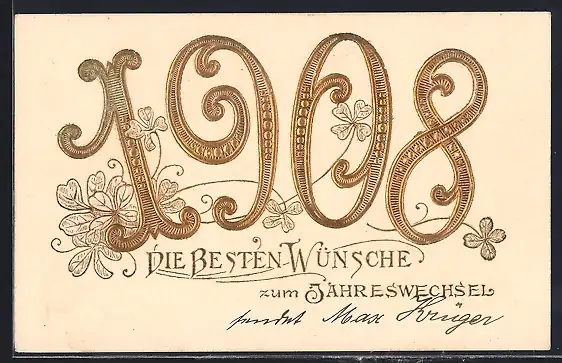 1908
DIE BESTEN WÜNSCHE
ZUM JAHRESWECHSEL
sendet Max Krüger